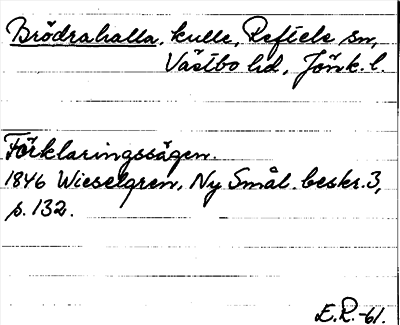 Brödrahalla, kulle, Reftels sn,
Västbo hd, Jönk. l.
Förklaringssägen.
1846 Wieselgren, Ny Smål. beskr. 3,
p. 132.
E.R.-61.